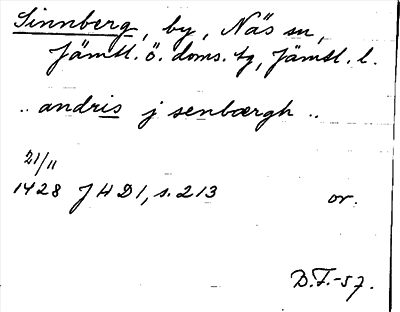 Sinnberg, by, Näs sn,
Jämtl. ö. doms. tg, Jämtl. l.
.. andris j senbærgh ..
21/11
1428 JHD1, s. 213 or.
D.F.-57.